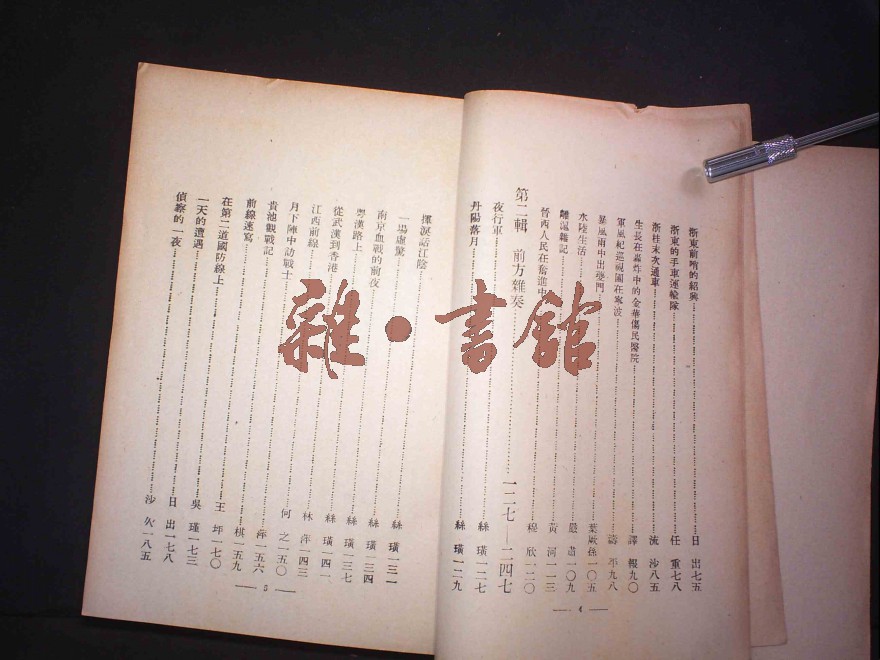 浙東前哨的紹興……日　出七五
浙東的手車運輸隊……任　重七八
浙桂末次通車……流　沙八五
生長在轟炸中的金華傷民醫院……譯　報九〇
軍風紀巡視團在寧波……濤　平九八
暴風雨中出甌門……葉厥孫一〇五
水陸生活……嚴　肅一〇九
離滬雜記……黃　河一一三
晉西人民在奮進中……程　欣一二〇
第二輯　前方雜奏……一二七—二四七
夜行軍……絲　璜一二七
丹陽落月……絲　璜一二九
— 4 —
揮淚話江陰……絲　璜一三一
一場虛驚……絲　璜一三四
南京血戰的前夜……絲　璜一三七
粵漢路上……絲　璜一四一
從武漢到香港……林　洋一四三
江西前線……何　之一五〇
月下陣中訪戰士……洋一五六
貴池觀戰記……棋一五九
前線速寫……王　坪一七〇
在第二道國防線上……吳　瑾一七三
一天的遭遇……日　出一七八
偵察的一夜……沙　一八五
— 5 —
雜・書館